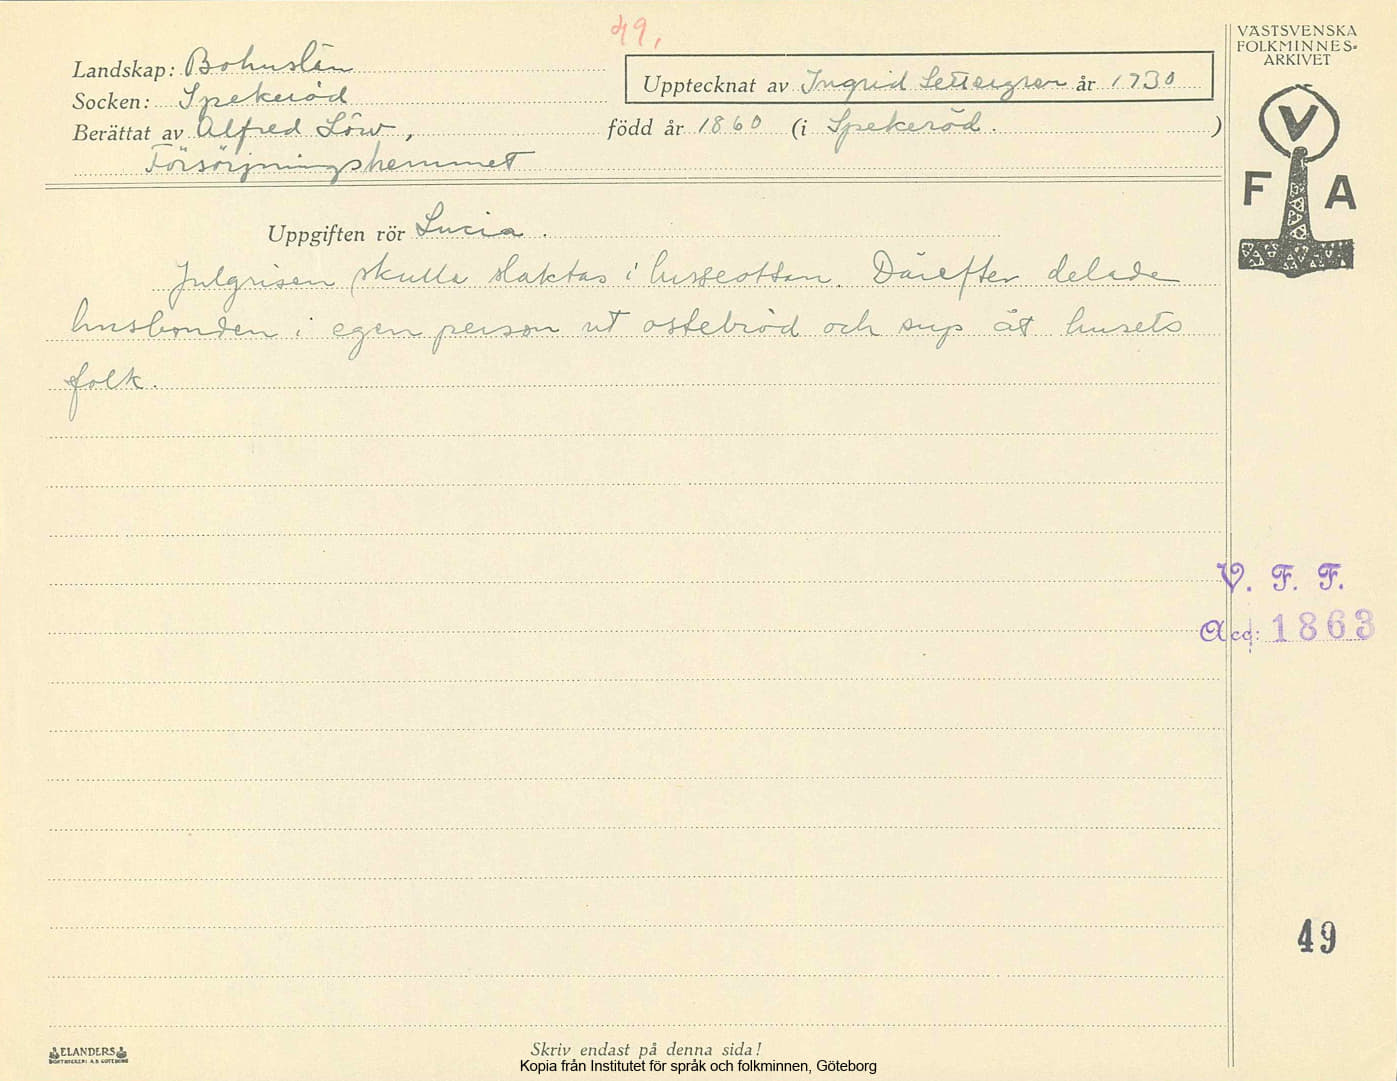 49,
VÄSTSVENSKA
FOLKMINNES-
ARKIVET
Landskap: Bohuslän
Upptecknat av Ingrid Settergren år 1930
Socken: Spekeröd
Berättat av Alfred Löw, född år 1860 (i Spekeröd. )
Försörjningshemmet
V
F A
Uppgiften rör Lucia.
Julgrisen skulle slaktas i lusseottan. Därefter delade
husbonden i egen person ut ostebröd och sup åt husets
folk.
V. F. F.
Acc: 1863
49
ELANDERS
BOKTRYCKERI A.B. GÖTEBORG
Skriv endast på denna sida!
Kopia från Institutet för språk och folkminnen, Göteborg